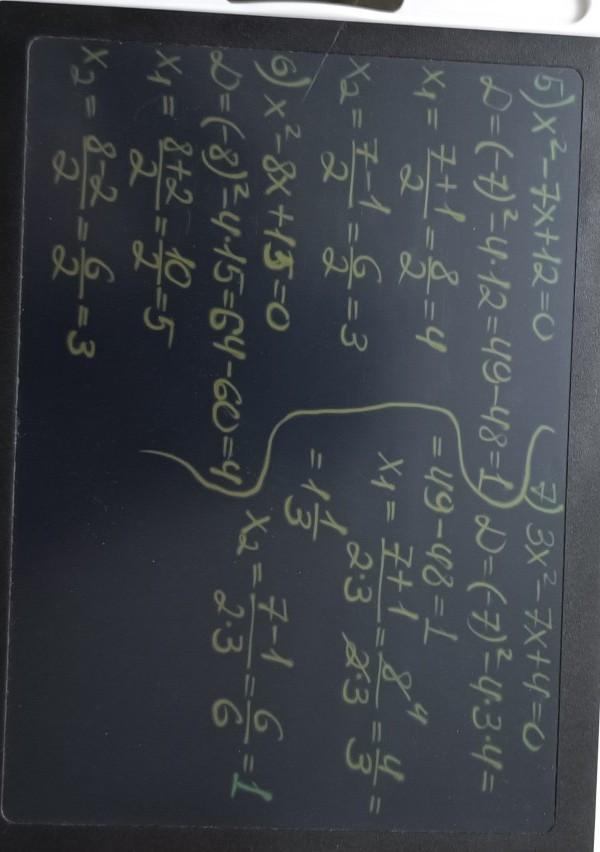 5) x² - 7x + 12 = 0
D = (-7)² - 4·12 = 49 - 48 = 1
x₁ = (7+1)/2 = 8/2 = 4
x₂ = (7-1)/2 = 6/2 = 3
6) x² - 8x + 15 = 0
D = (-8)² - 4·15 = 64 - 60 = 4
x₁ = (8+2)/2 = 10/2 = 5
x₂ = (8-2)/2 = 6/2 = 3
7) 3x² - 7x + 4 = 0
D = (-7)² - 4·3·4 =
= 49 - 48 = 1
x₁ = (7+1)/(2·3) = 8⁴/(2·3) = 4/3 =
= 1 1/3
x₂ = (7-1)/(2·3) = 6/6 = 1